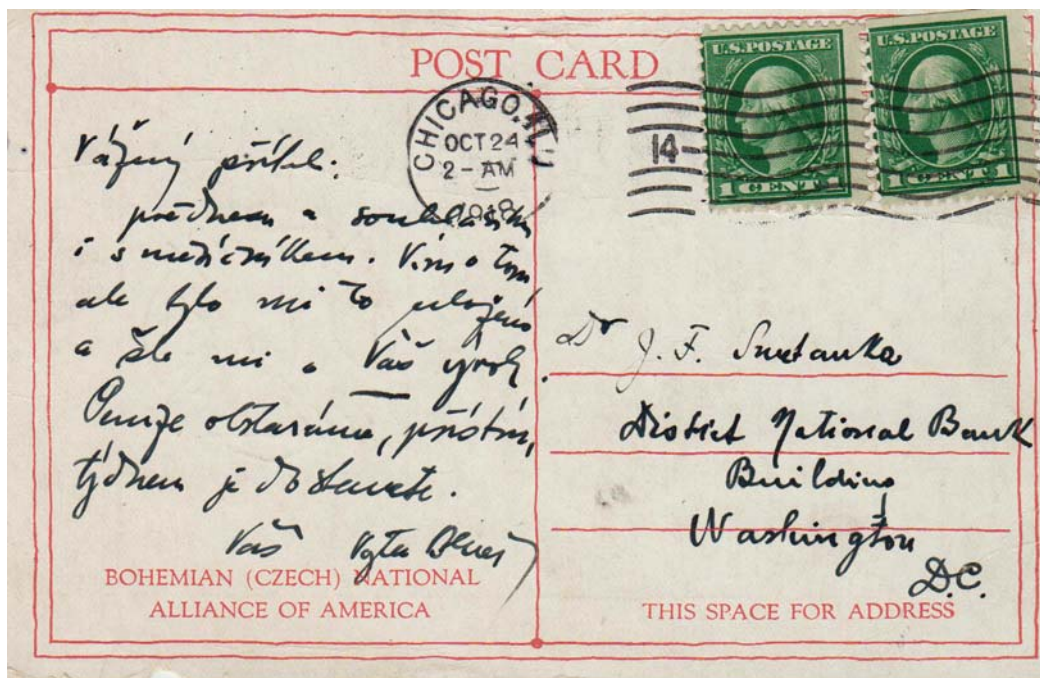 POST CARD
U.S. POSTAGE
U.S. POSTAGE
CHICAGO, ILL
OCT 24
2 - AM
1918
14
1 CENT 1
1 CENT 1
Vážený příteli:
a souhlasím
i s Vím o tom
ale bylo mi to uloženo
a šlo mi o Váš výrok.
Peníze obstaráme, příštím
týdnem je dostanete.
Váš Vojta Beneš
BOHEMIAN (CZECH) NATIONAL
ALLIANCE OF AMERICA
Dr J. F. Smetanka
District National Bank
Building
Washington
D.C.
THIS SPACE FOR ADDRESS